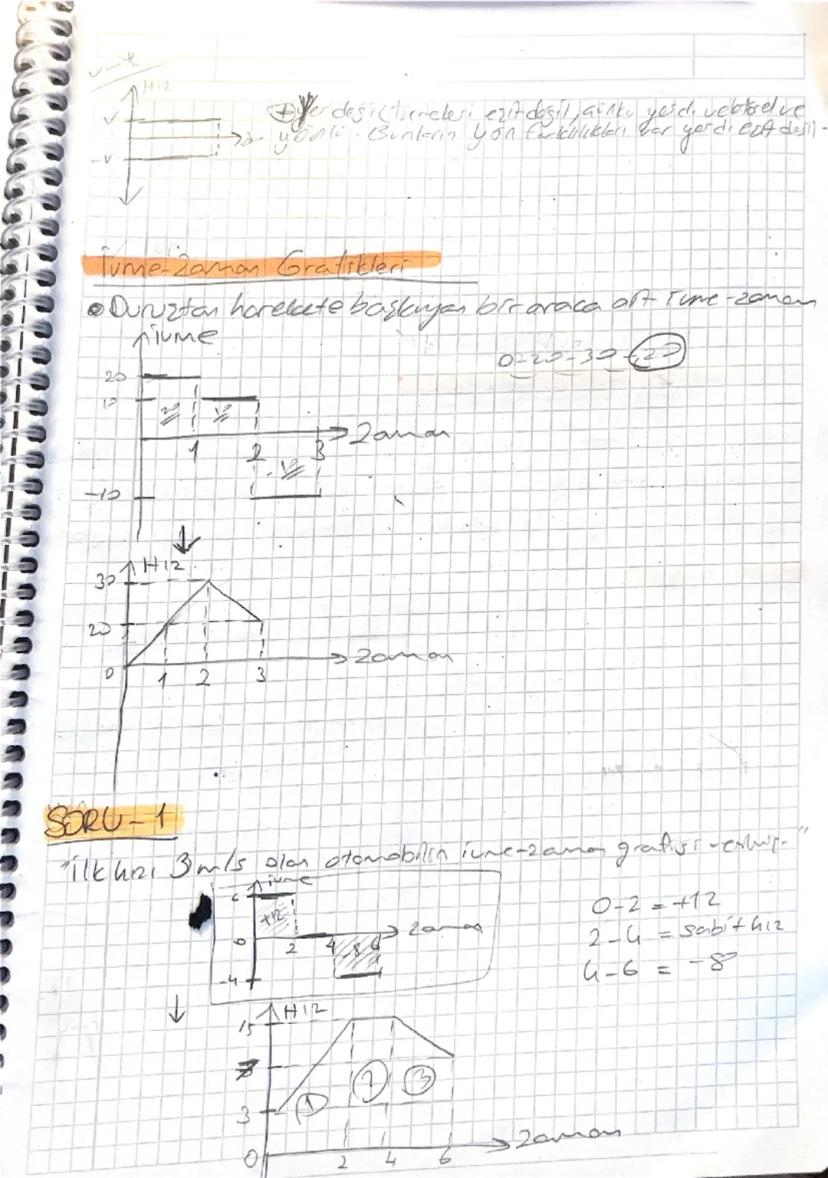 v-t
Hız
v
⊕ Yerdeğiştirmeleri eşit değil, çünkü yerd. vektörel ve
-v
yönlü. Bunların yön farklılıkları var yerd. eşit değil.
İvme-Zaman Grafikleri
• Duruştan harekete başlayan bir araca ait ivme-zaman
İvme
0-20-30-20
20
10
20 10
Zaman
1 2 3
-10
-10
Hız
30
20
Zaman
0 1 2 3
SORU-1
"İlk hızı 3 m/s olan otomobilin ivme-zaman grafiği verilmiş."
ivme
6
0-2 = +12
+12
0 2 4 6 Zaman
2-4 = sabit hız
-8
-4
4-6 = -8
Hız
15
7
1 2 3
3
Zaman
0 2 4 6